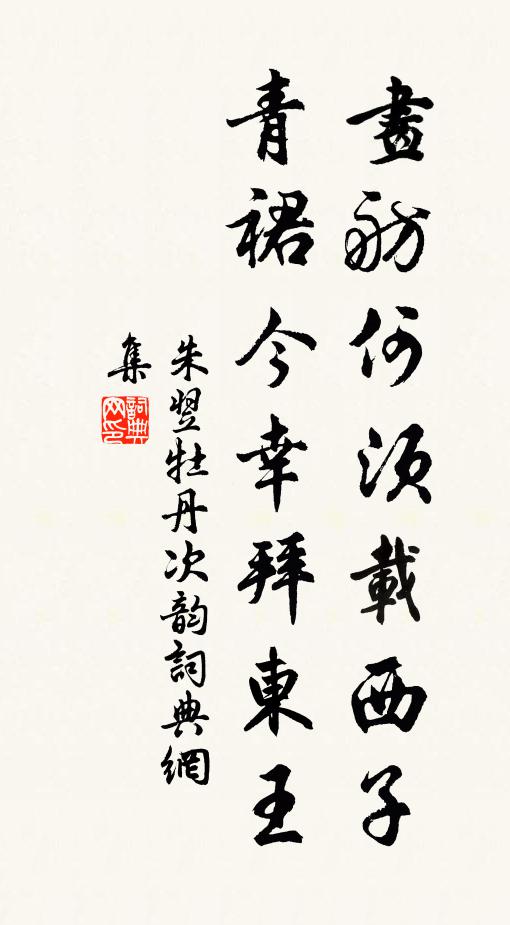 畫舫何須載西子
青裙今幸拜東王
朱翌牡丹次韵詞典網
集
詞典網印